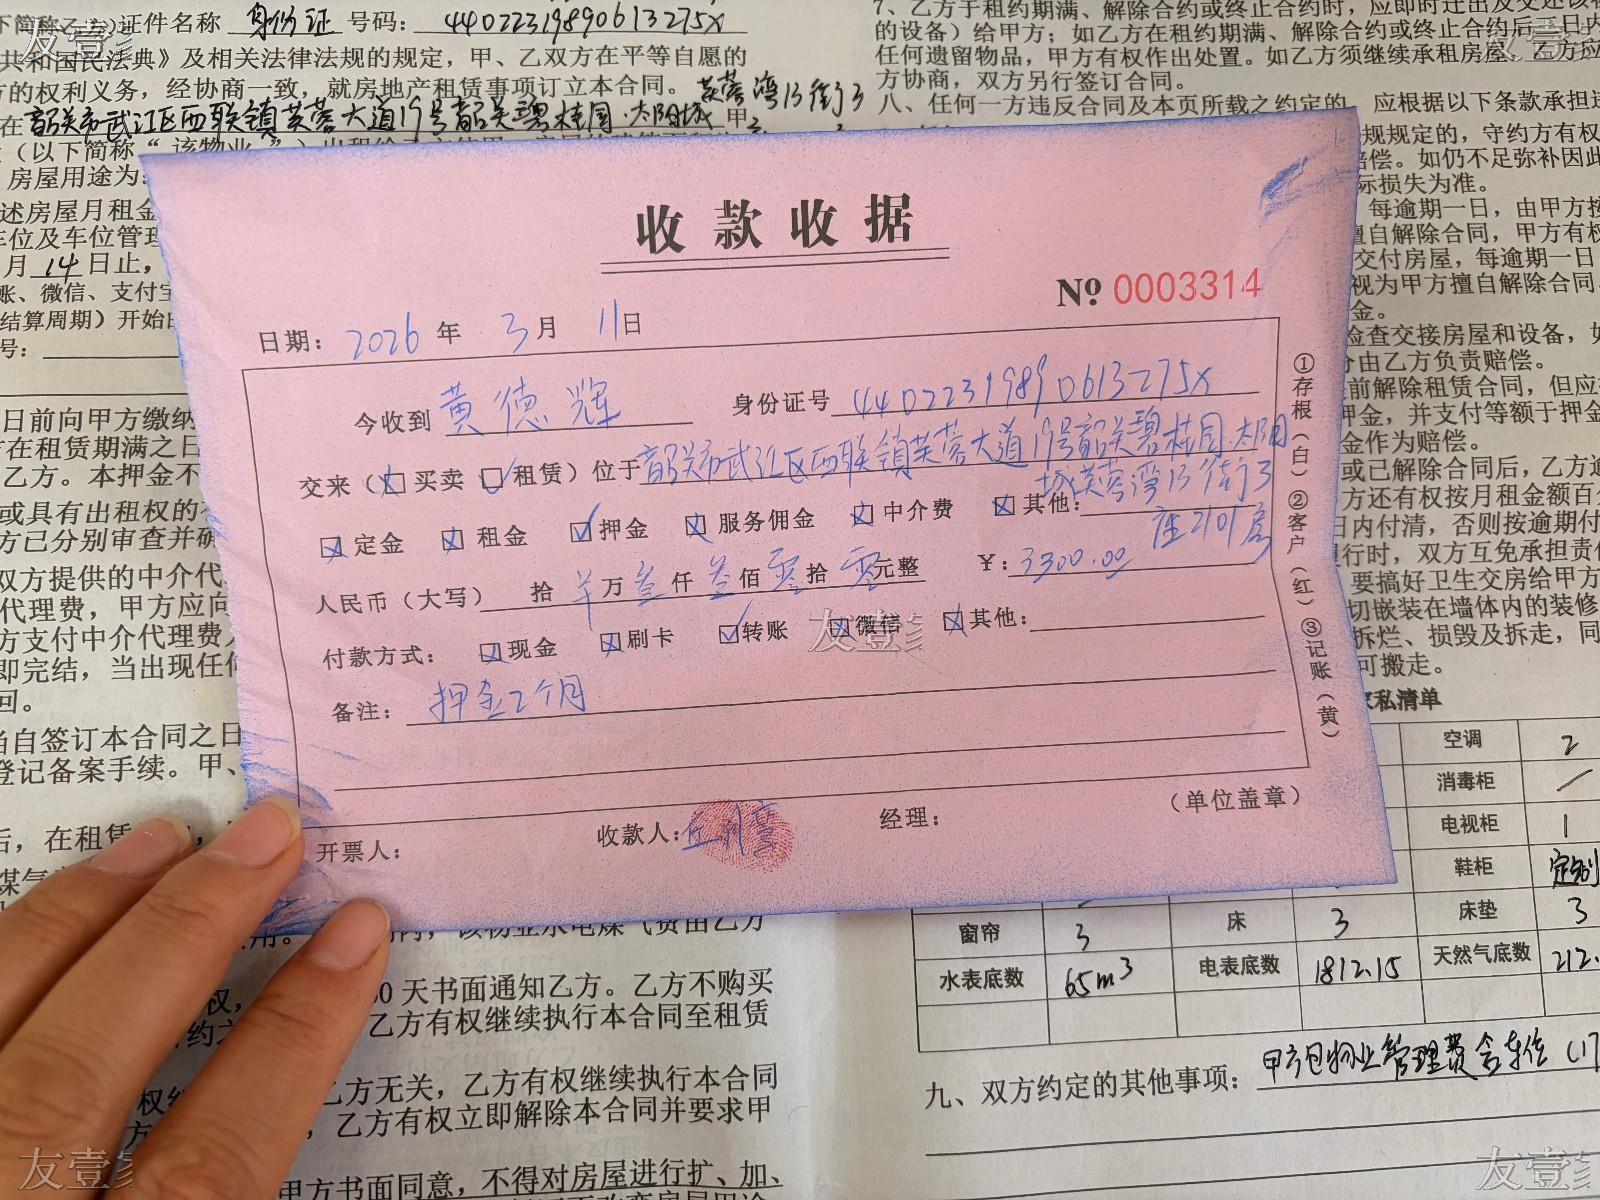 下简称乙方)证件名称 身份证 号码: 44022319890613275x
共和国民法典》及相关法律法规的规定，甲、乙双方在平等自愿的
方的权利义务，经协商一致，就房地产租赁事项订立本合同。芙蓉湾15街3
在韶关市武江区西联镇芙蓉大道19号韶关碧桂园.太阳城 甲
(以下简称“该物业”)
房屋用途为:
述房屋月租金
车位及车位管理
月14日止，
账、微信、支付宝
结算周期）开始
号:
日前向甲方缴纳
方在租赁期满之日
乙方。本押金不
或具有出租权的
方已分别审查并确
双方提供的中介代
代理费，甲方应向
方支付中介代理费
即完结，当出现任何
回。
当自签订本合同之日
登记备案手续。甲、
后，在租赁
煤气
该物业水电煤气费由乙方
0天书面通知乙方。乙方不购买
乙方有权继续执行本合同至租赁
乙方无关，乙方有权继续执行本合同
，乙方有权立即解除本合同并要求甲
甲方书面同意，不得对房屋进行扩、加、
7、乙方于租约期满、解除合约或终止合约时，应即时迁出及交还该物
的设备）给甲方；如乙方在租约期满、解除合约或终止合约后三日内
任何遗留物品，甲方有权作出处置。如乙方须继续承租房屋，乙方应
方协商，双方另行签订合同。
八、任何一方违反合同及本页所载之约定的，应根据以下条款承担违
规规定的，守约方有权
赔偿。如仍不足弥补因此
际损失为准。
每逾期一日，由甲方按
擅自解除合同，甲方有权
交付房屋，每逾期一日
视为甲方擅自解除合同，
金。
检查交接房屋和设备，如
分由乙方负责赔偿。
前解除租赁合同，但应
押金，并支付等额于押金
金作为赔偿。
或已解除合同后，乙方逾
方还有权按月租金额百分
日内付清，否则按逾期付
履行时，双方互免承担责任
要搞好卫生交房给甲方
切嵌装在墙体内的装修
拆烂、损毁及拆走，同
可搬走。
收款收据
№ 0003314
日期: 2026 年 3 月 11 日
今收到 黄德辉 身份证号 44022319890613275x
交来（☒买卖 ☑租赁）位于韶关市武江区西联镇芙蓉大道19号韶关碧桂园.太阳
城芙蓉湾15街3
☒定金 ☒租金 ☑押金 ☒服务佣金 ☒中介费 ☒其他:
座2101房
人民币（大写） 拾 羊万叁仟叁佰零拾零元整 ￥: 3300.00
付款方式: ☒现金 ☒刷卡 ☑转账 ☒微信 ☒其他:
备注: 押金2个月
开票人: 收款人: 经理: （单位盖章）
①存根（白）②客户（红）③记账（黄）
家私清单
空调 2
消毒柜 /
电视柜 1
鞋柜 定制
窗帘 3 床 3 床垫 3
水表底数 65m³ 电表底数 1812.15 天然气底数 212.
九、双方约定的其他事项: 甲方包物业管理费含车位（17
友壹家
友壹家
友壹家
友壹家
友壹家